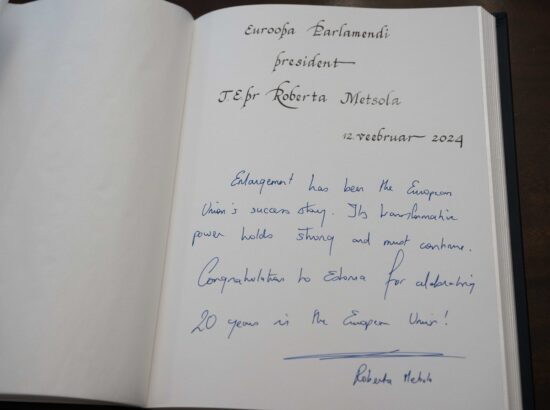 Euroopa Parlamendi
president
T.E.pr Roberta Metsola
12. veebruar 2024
Enlargement has been the European
Union's success story. Its transformative
power holds strong and must continue.
Congratulations to Estonia for celebrating
20 years in the European Union!
Roberta Metsola